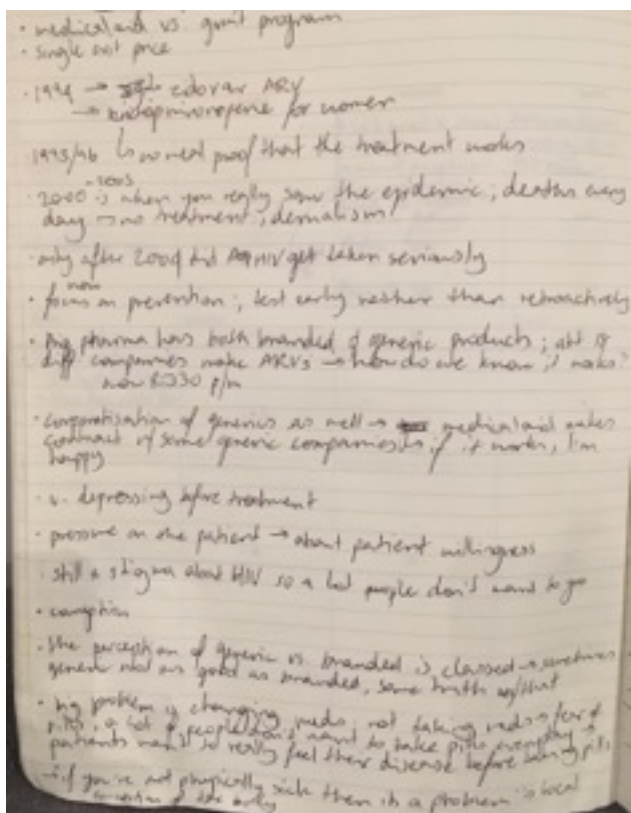 · medical aid vs. gov't program
· single exit price
· 1994 → ARV
→ for women
1995/96 ↳ no real proof that the treatment works
-2005
· 2000 is when you really saw the epidemic; deaths every
day → no treatment, denialism
· only after 2004 did HIV get taken seriously
now
· focus on prevention; test early rather than retroactively
· Big pharma has both branded & generic products; a lot of
diff companies make ARVs → how do we know it works?
now R330 p/m
· corporatisation of generics as well → medical aid makes
contract w/ some generic companies → if it works, I'm
happy
· v. depressing before treatment
· pressure on the patient → about patient willingness
· still a stigma about HIV so a lot people don't want to go
· corruption
· the perception of generic vs. branded is classed → sometimes
generic not as good as branded, some truth w/ that
· big problem is changing meds, not taking meds
pills, a lot of people don't want to take pills everyday →
patients want to really feel their disease before taking pills
→ if you're not physically sick then it's a problem local
of the body